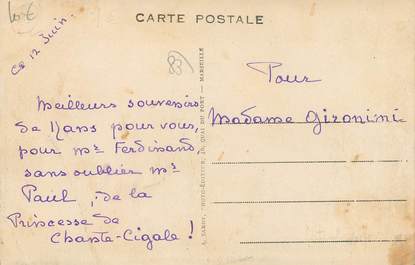 CARTE POSTALE
Ce 12 Juin.
83
Meilleurs souvenirs
de pour vous,
pour Mr Ferdinand
sans oublier Mr
Paul, de la
Princesse de
Chante-Cigale !
Pour
Madame Gironimi
PHOTO-ÉDITEUR, QUAI DU PORT - MARSEILLE